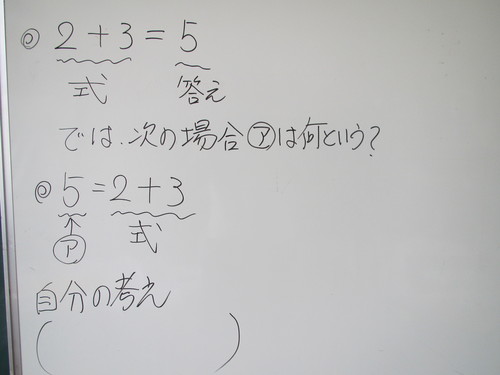 ◎ 2+3=5
式 答え
では、次の場合㋐は何という?
◎ 5=2+3
㋐ 式
自分の考え
( )